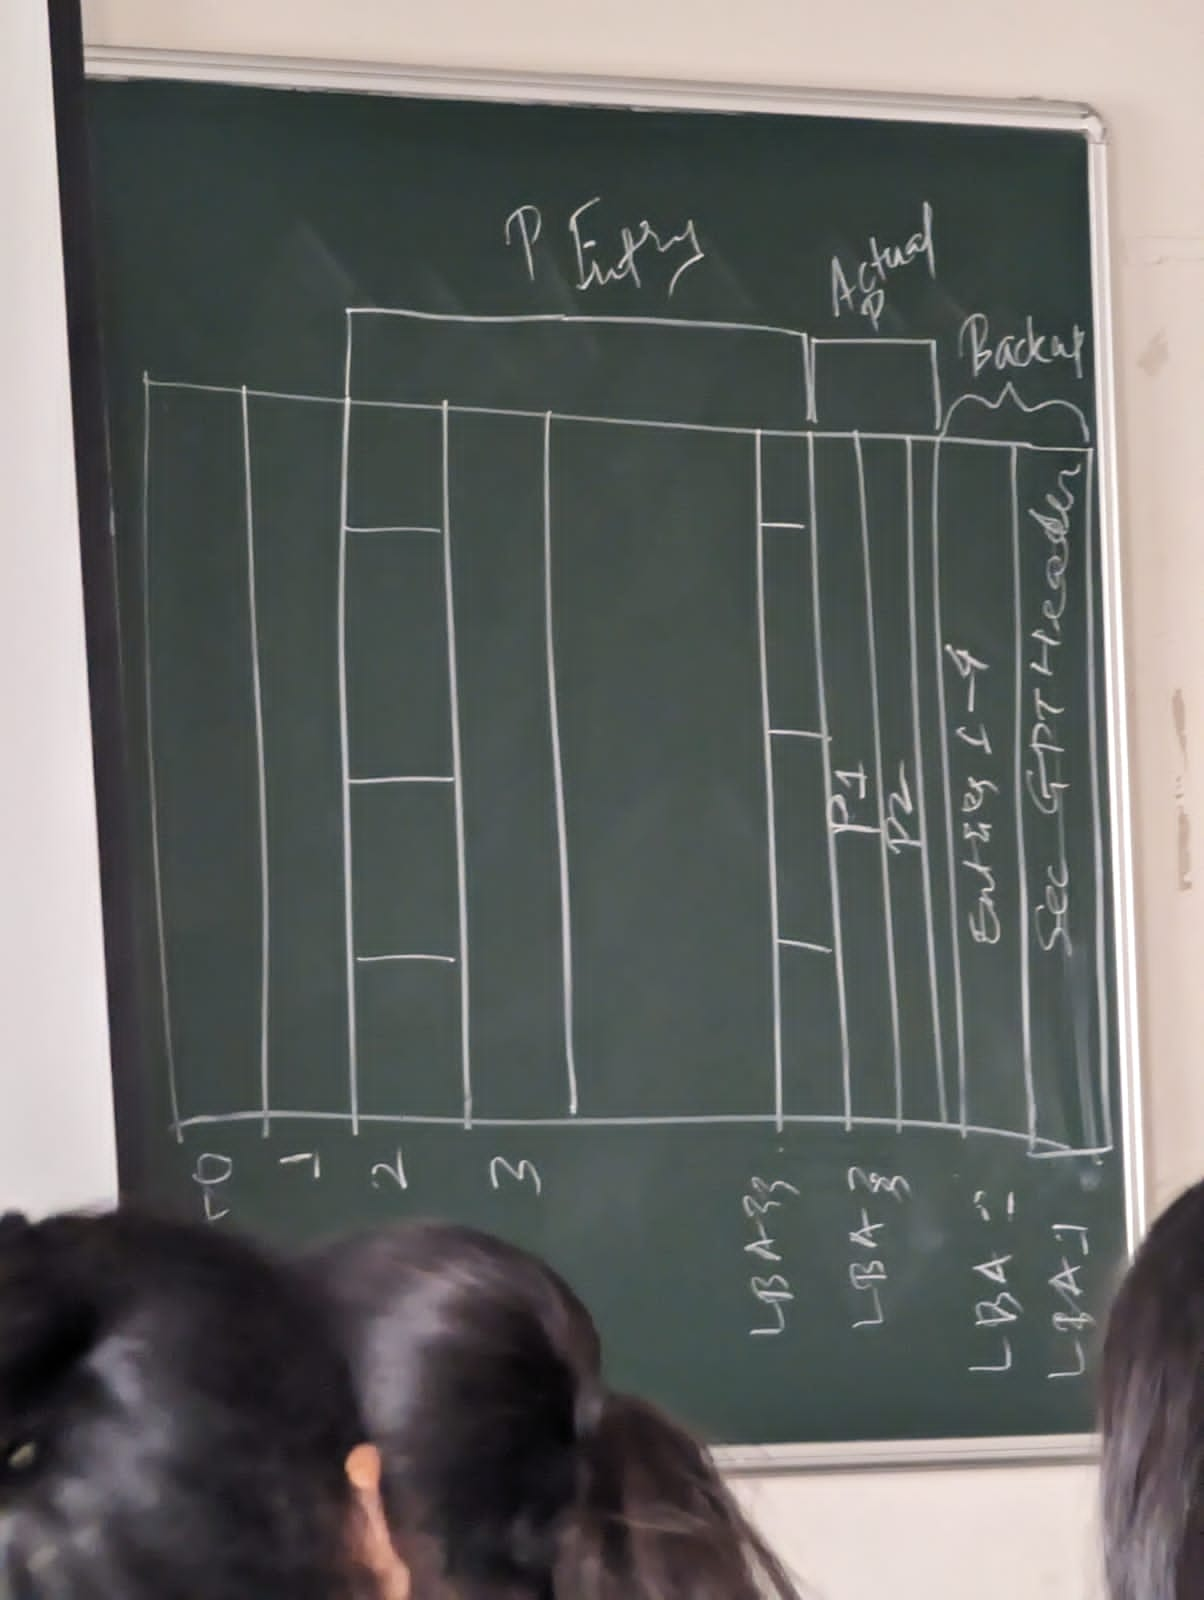 P Entry
Actual
P
Backup
P1
P2
Entries 1-4
Sec GPT Header
0
1
2
3
LBA 33
LBA
LBA
LBA-1